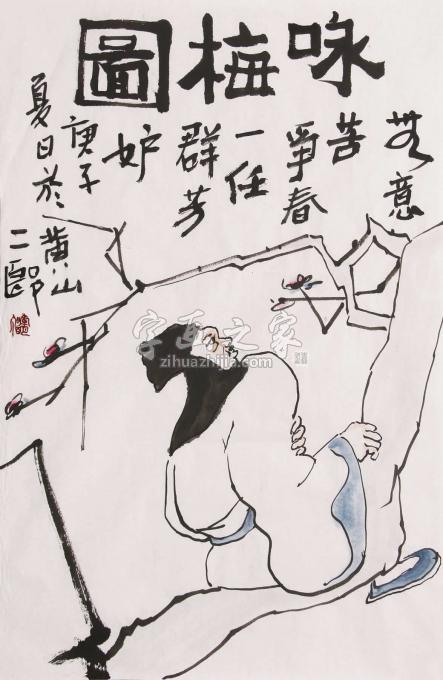 咏梅圖
無意
苦
爭春
一任
群芳
妒
庚子
夏日於
黄山
二郎
字画之家
zihuazhijia.com